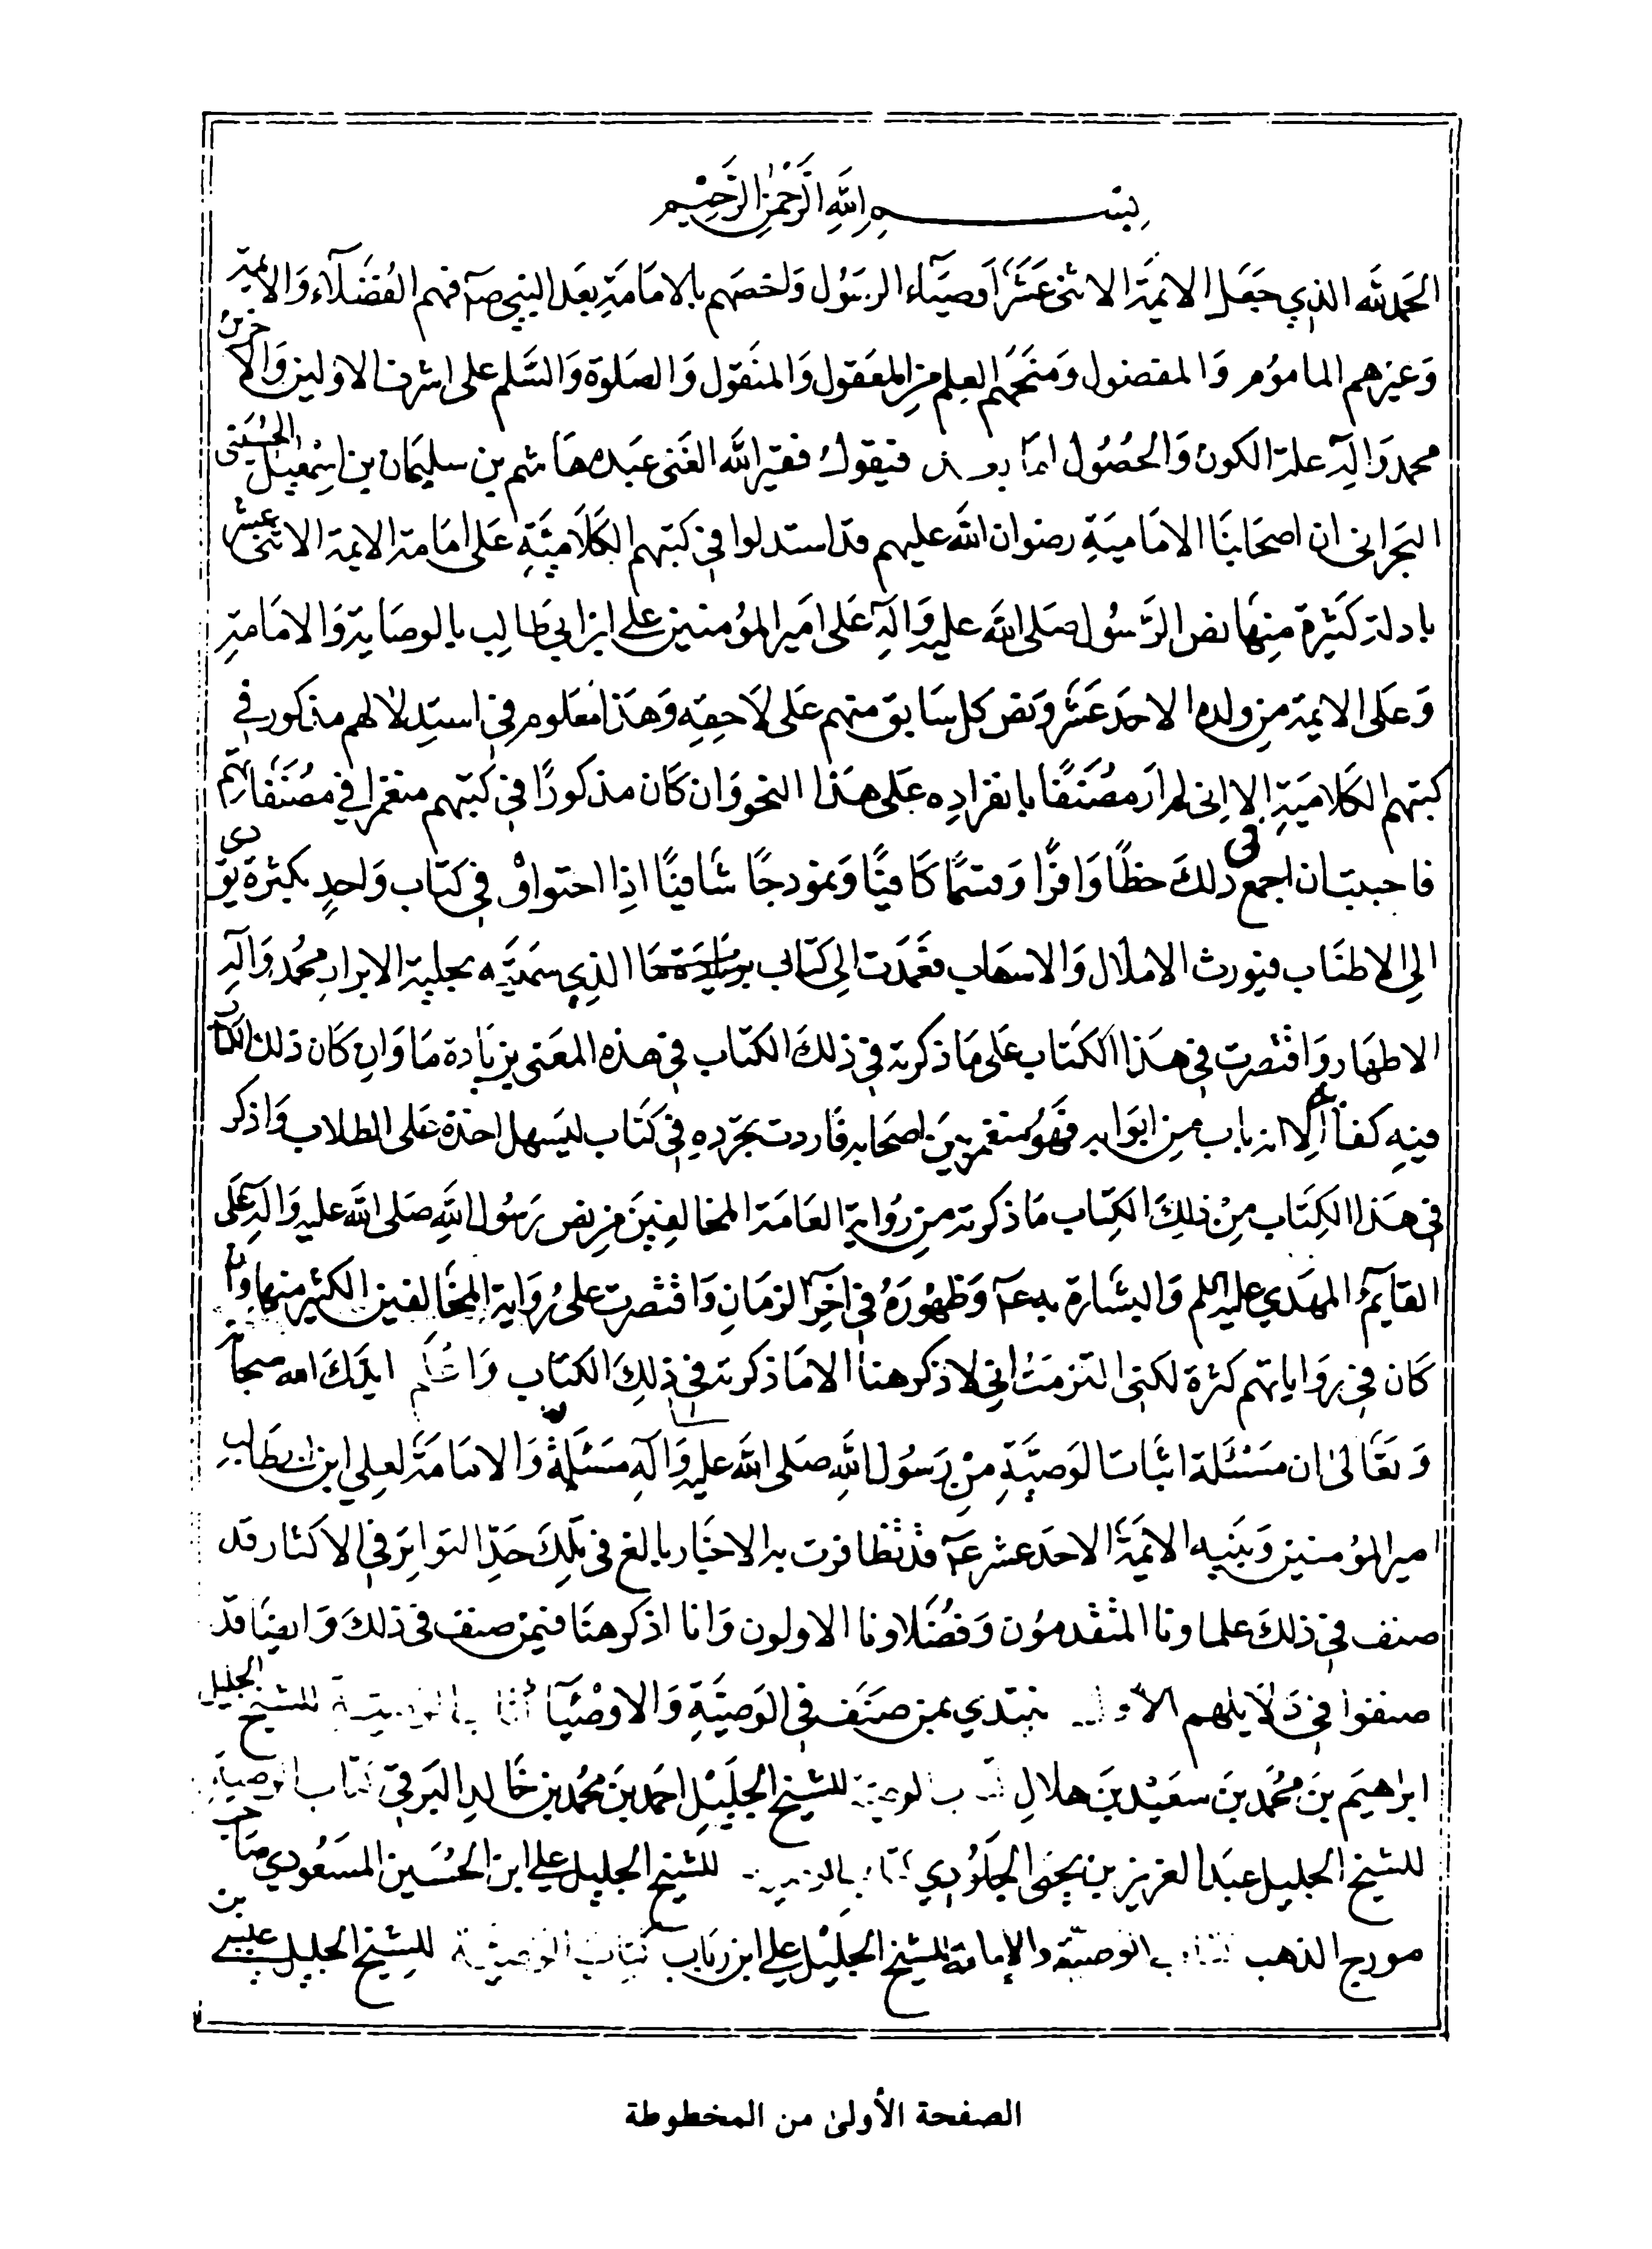 بسم الله الرحمن الرحيم
الحمد لله الذي جعل الائمة الاثنى عشر اوصياء الرسول ولخصهم بالامامة بعد النبي صۤ فهم الفضلاء والايمة
وغيرهم الماموم والمفضول ومنحهم العلم من المعقول والمنقول والصلوة والسلم على اشرف الاولين والاخرين
محمد وآله علة الكون والحصول اما بعد فيقول فقير الله الغنى عبده هاشم بن سليمان بن اسمعيل الحسينى
البحرانى ان اصحابنا الامامية رضوان الله عليهم قد استدلوا في كتبهم الكلامية على امامة الايمة الاثنى عشر
بادلة كثيرة منها نص الرسول صلى الله عليه وآله على امير المؤمنين علي ابن ابي طالب بالوصاية والامامة
وعلى الايمة من ولده الاحد عشر ونص كل سابق منهم على لاحقه وهذا معلوم في استدلالهم مذكور في
كتبهم الكلامية الا اني لم ار مصنفا بانفراده على هذا النحو وان كان مذكورا في كتبهم منغمرا في مصنفاتهم
فاحببت ان اجمع في ذلك حظا وافرا وقسما كافيا ونموذجا شافيا اذا احتواؤ في كتاب واحد بكثرة يودى
الى الاطناب فيورث الاملال والاسهاب فعمدت الى كتابى الذي سميته بحلية الابرار محمد وآله
الاطهار واقتصرت في هذا الكتاب على ما ذكرته في ذلك الكتاب في هذه المعنى بزيادة ما وان كان ذلك الكتاب
فيه كفاية الا انه باب من ابوابه فهو منغمر بين اصحابه فاردت تجرده في كتاب ليسهل اخذة على الطلاب واذكر
في هذا الكتاب من ذلك الكتاب ما ذكرته من رواية العامة المخالفين من نص رسول الله صلى الله عليه وآله على
القايم المهدي عليه السلم والبشارة به عۤ وظهوره في آخر الزمان واقتصرت على رواية المخالفين الكثير منها وان
كان في رواياتهم كثرة لكنى التزمت اني لا ذكر هنا الا ما ذكرته في ذلك الكتاب واعلم ايدك الله سبحانه
وتعالى ان مسئلة اثبات الوصية من رسول الله صلى الله عليه وآله مسئلة والامامة لعلي ابن ابي طالب
امير المؤمنين وبنيه الائمة الاحد عشر عۤ قد تظافرت به الاخبار بالغ في تلك حد التواتر في الاكثار قد
صنف في ذلك علماونا المتقدمون وفضلاونا الاولون وانا اذكر هنا فيمن صنف في ذلك وايضا قد
صنفوا في دلايلهم الاول نبتدي بمن صنف في الوصية والاوصيا كتاب الوصية للشيخ الجليل
ابراهيم بن محمد بن سعيد بن هلال كتاب الوصية للشيخ الجليل احمد بن محمد بن خالد البرقي كتاب الوصية
للشيخ الجليل عبد العزيز بن يحيى الجلودي كتاب الوصية للشيخ الجليل علي ابن الحسين المسعودي صاحب
مروج الذهب كتاب الوصية والامامة للشيخ الجليل علي ابن رباب كتاب الوصية للشيخ الجليل عيسى بن
الصفحة الأولى من المخطوطة